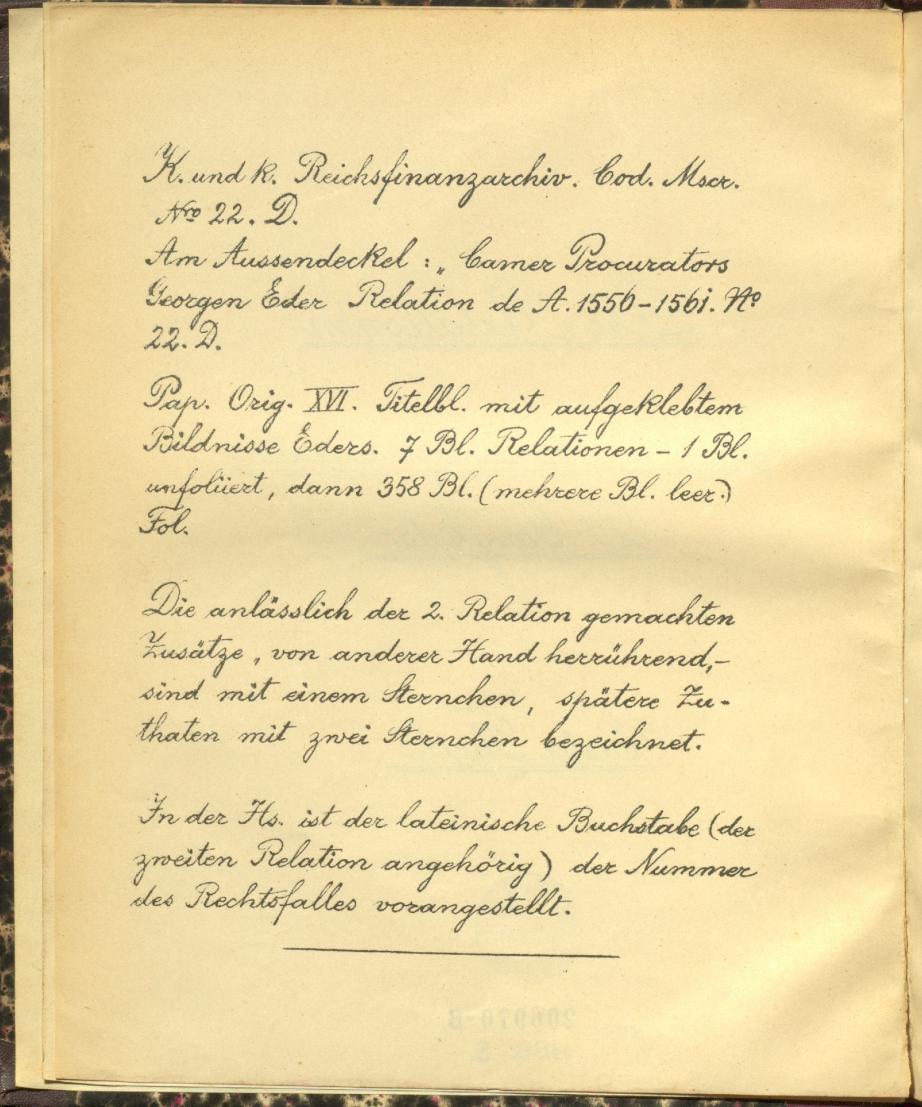 K. und k. Reichsfinanzarchiv. Cod. Mscr.
Nro 22. D.
Am Aussendeckel : „ Camer Procurators
Georgen Eder Relation de A. 1550–1561. No
22. D.
Pap. Orig. XVI. Titelbl. mit aufgeklebtem
Bildnisse Eders. 7 Bl. Relationen – 1 Bl.
unfoliiert, dann 358 Bl. (mehrere Bl. leer.)
Fol.
Die anlässlich der 2. Relation gemachten
Zusätze, von anderer Hand herrührend,–
sind mit einem Sternchen, spätere Zu-
thaten mit zwei Sternchen bezeichnet.
In der Hs. ist der lateinische Buchstabe (der
zweiten Relation angehörig) der Nummer
des Rechtsfalles vorangestellt.
206970-B